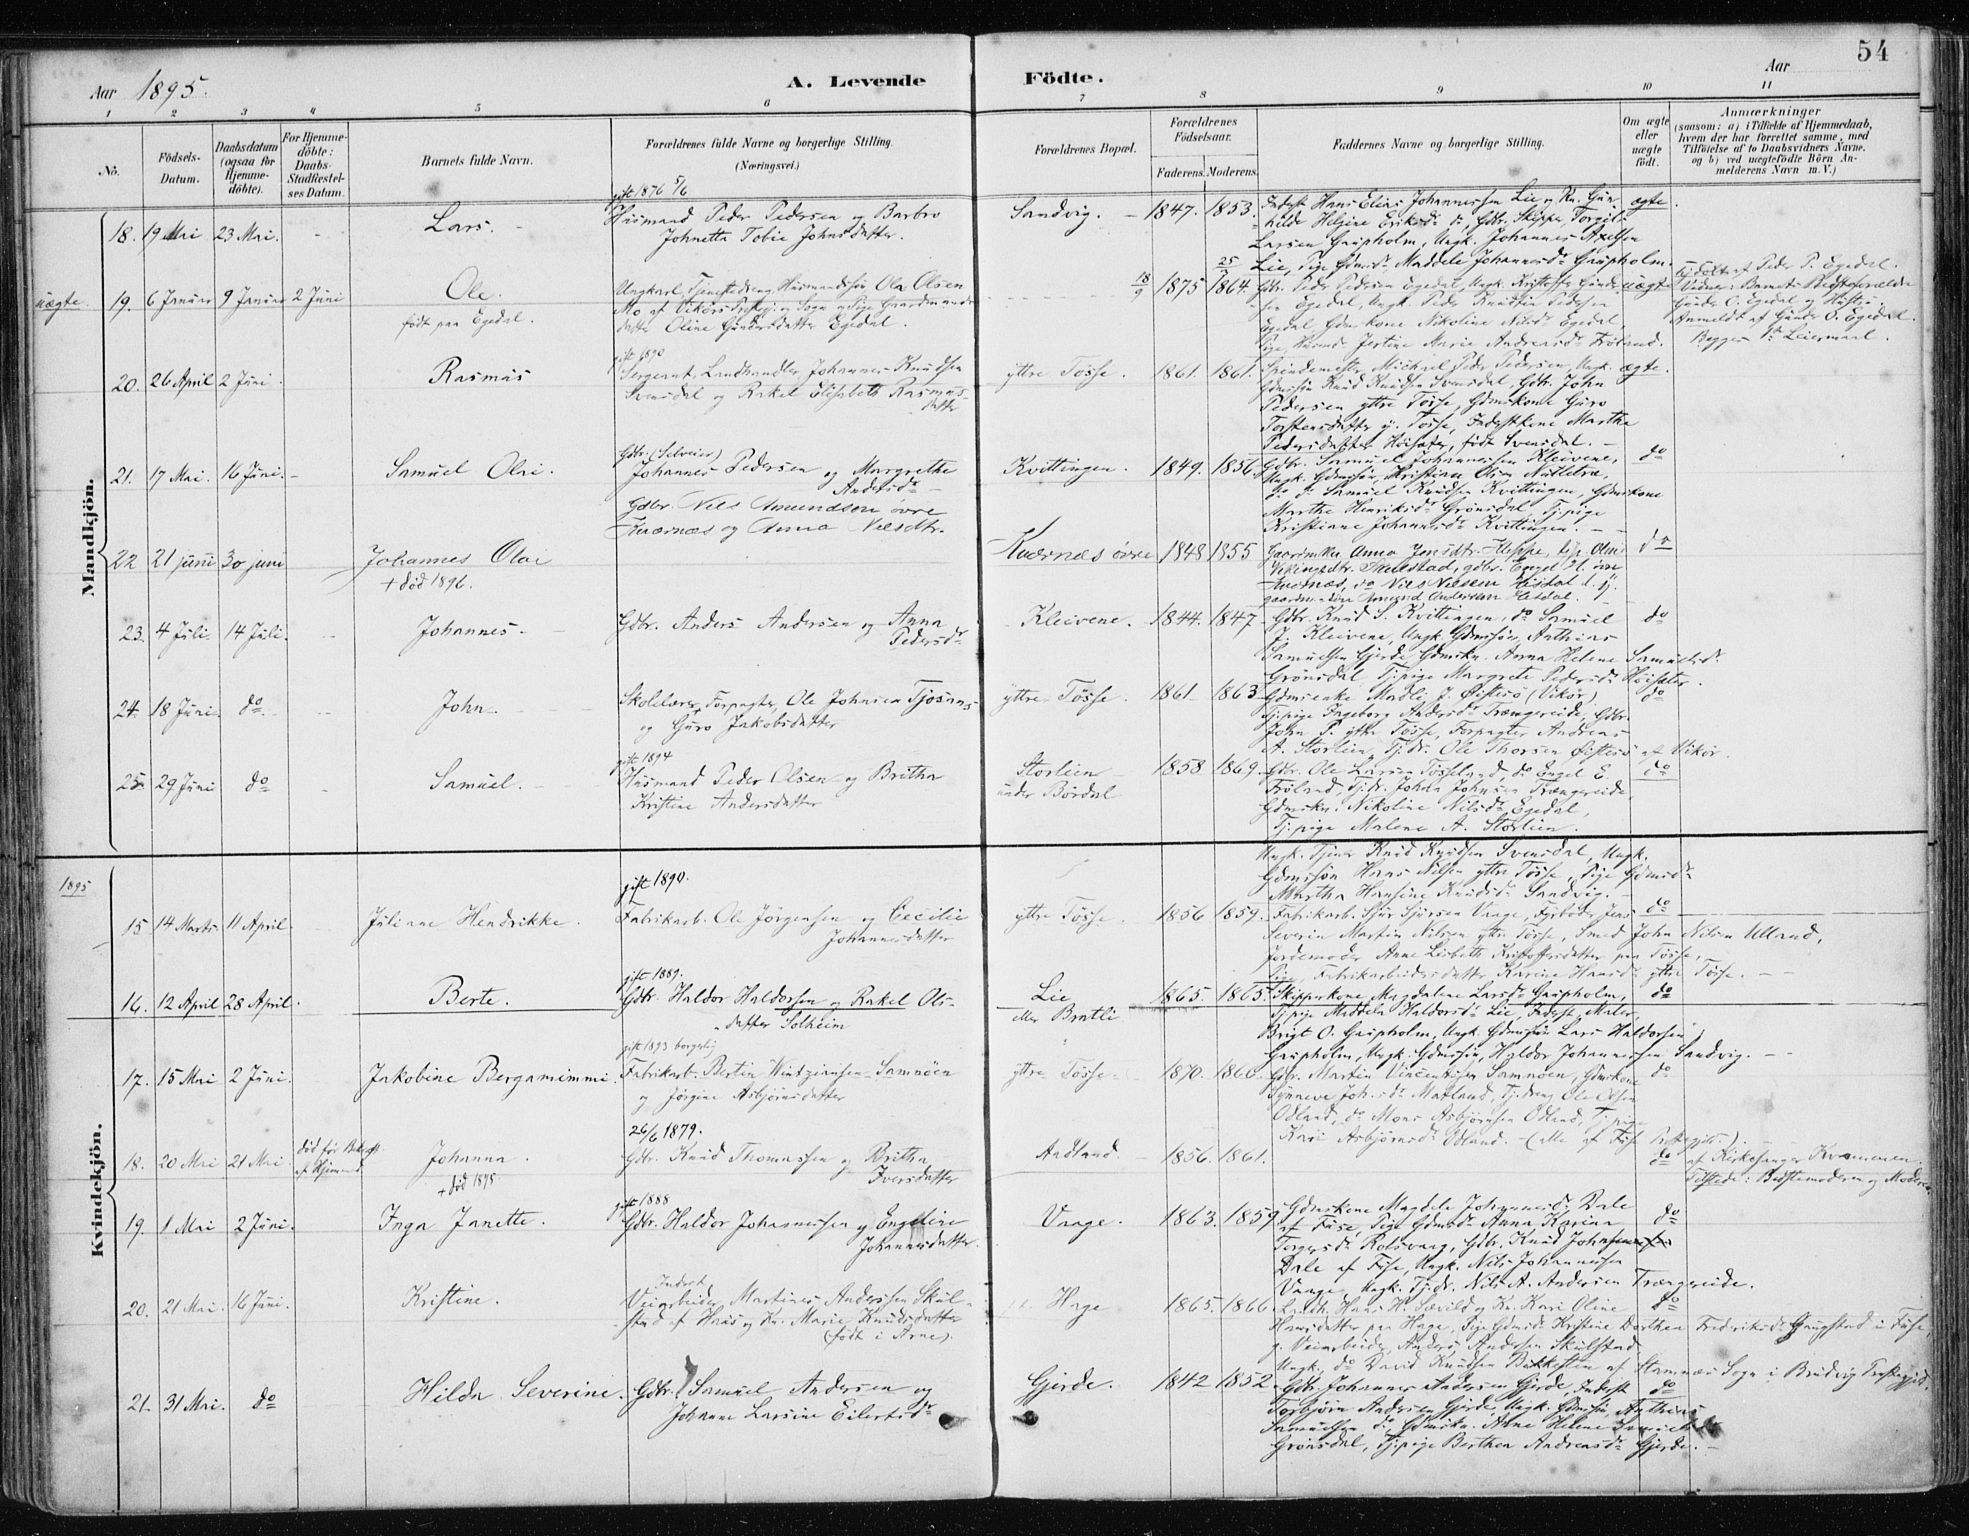 54
Aar 1895.
A. Levende Födte.
Aar
1 2 3 4 5 6 7 8 9 10 11
No.
Födsels-Datum.
Daabsdatum (ogsaa for Hjemmedöbte).
For Hjemmedöbte: Daabs-Stadfestelses Datum.
Barnets fulde Navn.
Forældrenes fulde Navne og borgerlige Stilling. (Næringsvei.)
Forældrenes Bopæl.
Forældrenes Födselsaar.
Faderens. Moderens.
Faddernes Navne og borgerlige Stilling.
Om ægte eller uægte födt.
Anmærkninger
(saasom: a) i Tilfælde af Hjemmedaab, hvem der har forrettet samme, med Tilföielse af to Daabsvidners Navne, og b) ved uægtefödte Börn Anmelderens Navn m. V.)
Mandkjön.
18. 19 Mai 23 Mai. Lars.
gift 1876 5/6
Husmand Peder Pedersen og Barbro
Johnetta Tobie Johnsdatter.
Sandvig. 1847. 1853.
Inderst Hans Elias Johannessen Lie og Kn. Gun-
hilde Helgine Eriksdr. do, Gdbr. Skipper Torgils
Larsen Gaupholm, Ungk. Johannes Axelsen
Lie, Pige Gdmdr. Maddele Johannesdr. Gaupholm.
ægte.
uægte. 19. 6 Januar 9 Januar 2 Juni Ole.
født paa Egedal.
Ungkarl Tjenestedreng Husmandssøn Ola Olsen
Mo af Vikørs Prstgj. og Sogn og Pige Gaardmands-
datter Oline Gundersdatter Egedal.
18/9 1875 25 1864.
Gdbr. Peder Pedersen Egedal, Ungk. Kristoffer Gunder-
sen Egedal, Ungk. Peder Knudsen Pedersen
Egedal, Gdmkone Nikoline Nilsdr. Egedal,
Pige, Husmdr. Jertine Marie Andreasdr. Frøland.
uægte
Hjdøbt af Peder P. Egedal.
Vidner: Barnets Bedsteforældre
Gunder O. Egedal og Hustru.
Anmeldt af Gunder O. Egedal.
Begges 1ste Leiermaal.
20. 26 April 2 Juni. Rasmus
gift 1890
Sergeant, Landhandler Johannes Knudsen
Svensdal og Rakel Elisabeth Rasmus-
datter
yttre Tøsse. 1861. 1861.
Spindemester Michael Peder Pedersen, Ungk.
Gdmsøn Knud Knudsen Svensdal, Gdbr. John
Pedersen yttre Tøsse, Gdmskone Guro
Torstensdatter y. Tøsse, Inderstkone Martha
Pedersdatter Høisæter, født Svensdal.
ægte.
21. 17 Mai. 16 Juni. Samuel Olai.
Gdbr. (Selveier)
Johannes Pedersen og Margrethe
Andersdr.
Kvittingen. 1849. 1856.
Gdbr. Samuel Johannessen Kleivene,
Ungk. Gdmssøn Kristian Olsen Nøtletræ,
do. do. Samuel Knudsen Kvittingen, Gdmskone
Marthe Henriksdr. Grønsdal, Tj.pige
Kristiane Johannesdr. Kvittingen.
do
22 21 juni 30 juni Johannes Olai
+ død 1896.
Gdbr. Nils Amundsen øvre
Kværnæs og Anna Nilsdtr.
Kværnæs øvre 1848 1855
Gaardmkn. Anna Jensdtr. Kleppe, tjp. Olni
Vikingsdtr. Skeiestad, gdbr. Engel H. øvre
Kværnæs, do Nils Nilsen Hisdal i. H.
gaardm. søn Amund Andersen Hisdal.
do
23. 4 Juli 14 Juli. Johannes.
Gdbr. Anders Andersen og Anna
Pedersdr.
Kleivene. 1844. 1847
Gdbr. Knud S. Kvittingen, do Samuel
J. Kleivene, Ungk. Gdmsøn Anthias
Samuelsen Gjerde, Gdmskn. Anna Helene Samuelsdr.
Grønsdal, Tj.pige Margrete Pedersdr. Høisæter.
do
24. 18 Juni. do John.
Skolelærer, Forpagter, Ole Johnsen Tjosaas
og Guro Jakobsdatter
yttre Tøsse. 1861 1863
Gdmsenke Madli J. Øistesø (Vikør)
Tj.pige Ingeborg Andersdr. Trængereide, Gdbr.
John P. yttre Tøsse, Forpagter Andreas
A. Storlien, Tj.dr. Ole Thorsen Øistesø af Vikør.
do
25 29 Juni do Samuel.
gift 1894
Husmand Peder Olsen og Britha
Kristine Andersdatter
Storlien
under Børdal
1858 1869.
Gdbr. Ole Larsen Tøsseland, do Engel E.
Frøland, Tj.dr. John Johnsen Trængereide,
Gdmskn. Nikoline Nilsdr. Egedal,
Tj.pige Malene A. Storlien.
do
1895
Kvindekjön.
15 14 Marts. 11 April. Juliane Hendrikke.
gift 1890.
Fabrikarb. Ole Jørgensen og Cecilie
Johannesdatter
yttre Tøsse. 1856 1859.
Ungk. Tjener Knud Knudsen Svensdal, Ungk.
Gdmssøn Hans Nilsen yttre Tøsse, Pige Gdmsdr.
Martha Hansine Knudsdr. Sandvig.
Fabrikarb. Sjur Sjursen Vaage, Fyrbøder Jens
Severin Martin Nilsen yttre Tøsse, Smed John Nilsen Ulland,
Jordemoder Anne Lisbeth Kristoffersdatter paa Tøsse,
Pige, Fabrikarbeidersdatter Karine Hansdr. yttre Tøsse.
do
16. 12 April 28 April. Berte.
gift 1889.
Gdbr. Haldor Haldorsen og Rakel Ols-
datter Solheim
Lie
eller Bratli
1865. 1865.
Skipperkone Magdalene Larsdr. Gaupholm,
Tj.pige Maddela Haldorsdr. Lie, Inderst, Maler,
Brigt O. Gaupholm, Ungk. Gdmssøn Lars Haldorsen
Gaupholm, Ungk. Gdmssøn, Haldor Johannessen Sandvig.
do
17. 15 Mai 2 Juni. Jakobine Bergamimmi.
gift 1893 borgerlig
Fabrikarb. Bertin Wintziansen Samnøen
og Jørgine Asbjørnsdatter
yttre Tøsse 1870. 1866.
Gdbr. Martin Vincentsen Samnøen, Gdmskone
Synneve Johsdr. Matland, Tj.dreng Ole Olsen
Odland, do Mons Asbjørnsen Odland, Tj.pige
Kari Asbjørnsdr. Odland. (alle af Fuse Prstegjeld.)
do
18. 20 Mai 21 Mai død før Bekræft.
af Hjemmed. Johanna.
+ død 1895
26/6 1879.
Gdbr. Knud Thomassen og Britha
Iversdatter
Aadland. 1856. 1861.
do
af Kirkesanger Kvammen.
Tilstede: Bedstemoderen og Moderen.
19. 1 Mai 2 Juni. Inga Janette.
gift 1888
Gdbr. Haldor Johannessen og Engeline
Johannesdatter.
Vaage. 1863. 1859
Gdmskone Magdele Johannesdr. Dale
af Fuse, Pige Gdmsdr. Anna Karina
Torgersdr. Rotsvaag, Gdbr. Knud Johannessen
Dale af Fuse, Ungk. Nils Johannessen
Vaage, Ungk. Tj.dr. Nils A. Andersen Trængereide.
do
20. 21 Mai. 16 Juni. Kristine.
Inderst
Veiarbeider, Martinus Andersen Skul-
stad af Haus og Kn. Marie Knudsdatter
(født i Arne).
Hage 1865. 1866.
Landh. Hans H. Sævild og Kn. Kari Oline
Hansdatter paa Hage, Pige Gdmsdr. Kristine Dorthea Fredriksdr. Gaugstad i Fuse,
g. Veiarbeider Anders Andersen Skulstad
Ungk. do David Knudsen Bukkesten af Stamnæs Sogn i Bruvig Prstegjeld.
do
21. 31 Mai. do Hilda Severine.
Gdbr. Samuel Andersen og
Johanne Larsine Eilertsdr.
Gjerde. 1842 1852
Gdbr. Johannes Andersen Gjerde, Inderst
Torbjørn Andersen Gjerde, Ungk. Gdmssøn, Anthias
Samuelsen do, Gdmskn. Anne Helene Samuelsdr.
Grønsdal, Tj.pige Berthea Andreasdr. Gjerde.
do